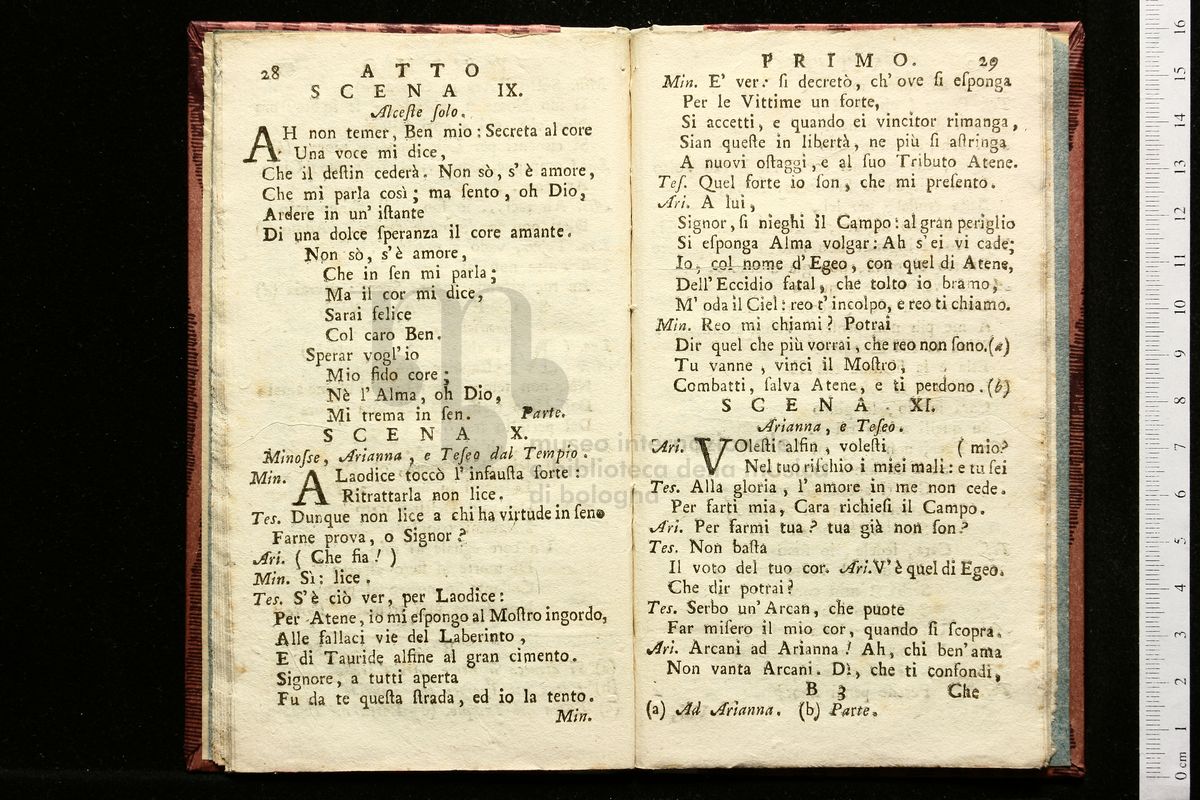 28 ATTO
SCENA IX.
Alceste ſolo.
AH non temer, Ben mio: Secreta al core
Una voce mi dice,
Che il deſtin cederà. Non sò, s'è amore,
Che mi parla così; ma ſento, oh Dio,
Ardere in un' iſtante
Di una dolce ſperanza il core amante.
Non sò, s'è amore,
Che in ſen mi parla;
Ma il cor mi dice,
Sarai felice
Col caro Ben.
Sperar vogl'io
Mio fido core;
Nè l'Alma, oh Dio,
Mi trema in ſen. Parte.
SCENA X.
Minoſse, Arianna, e Teſeo dal Tempio.
Min. A Laodice toccò l'infauſta ſorte:
Ritrattarla non lice.
Tes. Dunque non lice a chi ha virtude in ſeno
Farne prova, o Signor?
Ari. (Che fia!)
Min. Sì: lice.
Tes. S'è ciò ver, per Laodice:
Per Atene, io mi eſpongo al Moſtro ingordo,
Alle fallaci vie del Laberinto,
E di Tauride alfine al gran cimento.
Signore, a tutti aperta
Fu da te queſta ſtrada, ed io la tento.
Min.
PRIMO. 29
Min. E' ver: ſi decretò, ch' ove ſi eſponga
Per le Vittime un forte,
Si accetti, e quando ei vincitor rimanga,
Sian queſte in libertà, ne più ſi aſtringa
A nuovi oſtaggi, e al ſuo Tributo Atene.
Teſ. Quel forte io ſon, che mi preſento.
Ari. A lui,
Signor, ſi nieghi il Campo: al gran periglio
Si eſponga Alma volgar: Ah s'ei vi cade;
Io, col nome d'Egeo, con quel di Atene,
Dell'Eccidio fatal, che tolto io bramo,
M' oda il Ciel: reo t'incolpo, e reo ti chiamo.
Min. Reo mi chiami? Potrai
Dir quel che più vorrai, che reo non ſono.(a)
Tu vanne, vinci il Moſtro,
Combatti, ſalva Atene, e ti perdono.(b)
SCENA XI.
Arianna, e Teſeo.
Ari. VOleſti alfin, voleſti (mio?
Nel tuo riſchio i miei mali: e tu ſei
Tes. Alla gloria, l'amore in me non cede.
Per farti mia, Cara richieſi il Campo.
Ari. Per farmi tua? tua già non ſon?
Tes. Non baſta
Il voto del tuo cor. Ari. V'è quel di Egeo.
Che dir potrai?
Tes. Serbo un'Arcan, che puote
Far miſero il mio cor, quando ſi ſcopra.
Ari. Arcani ad Arianna! Ah, chi ben'ama
Non vanta Arcani. Dì, che ti confondi,
B 3 Che
(a) Ad Arianna. (b) Parte.
museo internazionale
e biblioteca della musica
di bologna
0 cm 1 2 3 4 5 6 7 8 9 10 11 12 13 14 15 16